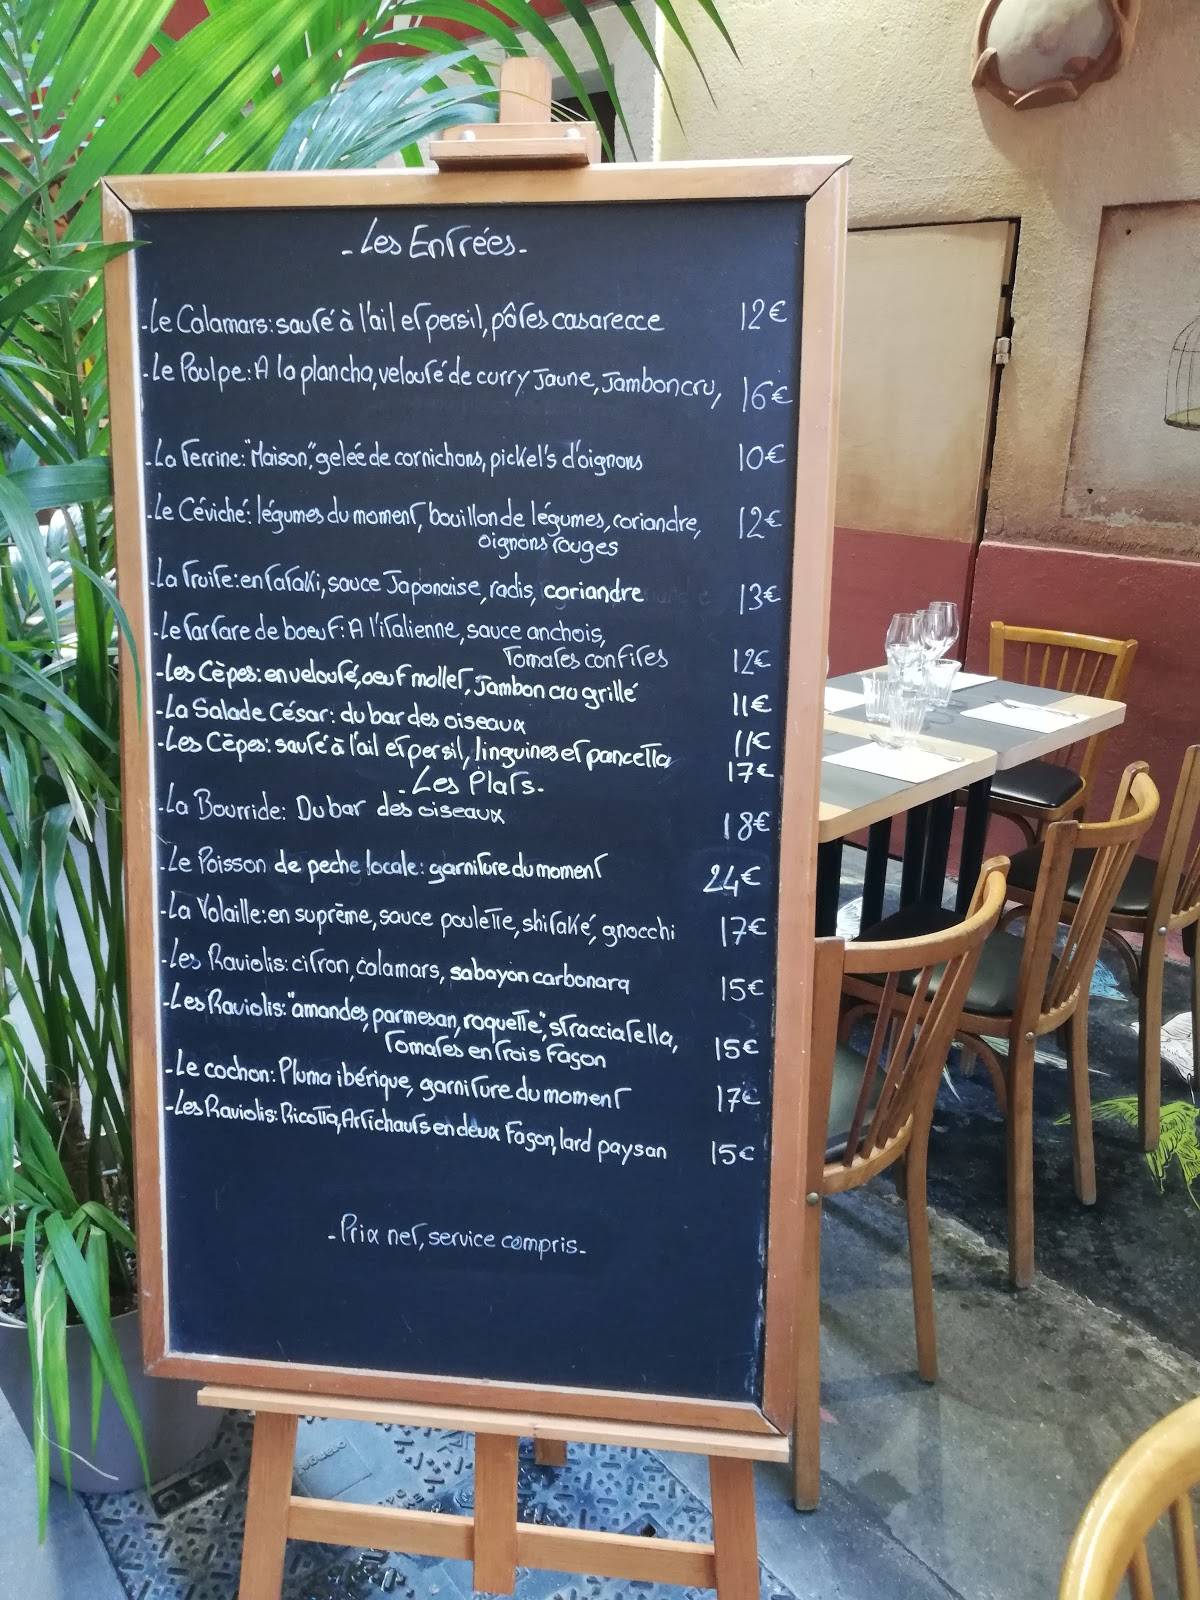 - Les Entrées -
- Le Calamars: sauté à l'ail et persil, pâtes casarecce 12€
- Le Poulpe: A la plancha, velouté de curry Jaune, Jambon cru, 16€
- La Terrine: "Maison", gelée de cornichons, pickel's d'oignons 10€
- Le Céviché: légumes du moment, bouillon de légumes, coriandre, 12€
oignons rouges
- La Truite: en tataki, sauce Japonaise, radis, coriandre 13€
- Le Tartare de boeuf: A l'italienne, sauce anchois,
Tomates confites 12€
- Les Cèpes: en velouté, oeuf mollet, Jambon cru grillé 11€
- La Salade César: du bar des oiseaux 11€
- Les Cèpes: sauté à l'ail et persil, linguines et pancetta 17€
- Les Plats -
- La Bourride: Du bar des oiseaux 18€
- Le Poisson de peche locale: garniture du moment 24€
- La Volaille: en suprême, sauce poulette, shitaké, gnocchi 17€
- Les Raviolis: citron, calamars, sabayon carbonara 15€
- Les Raviolis: "amandes, parmesan, roquette", stracciatella, 15€
Tomates en trois Façon
- Le cochon: Pluma ibérique, garniture du moment 17€
- Les Raviolis: Ricotta, Artichauts en deux Façon, lard paysan 15€
- Prix net, service compris -